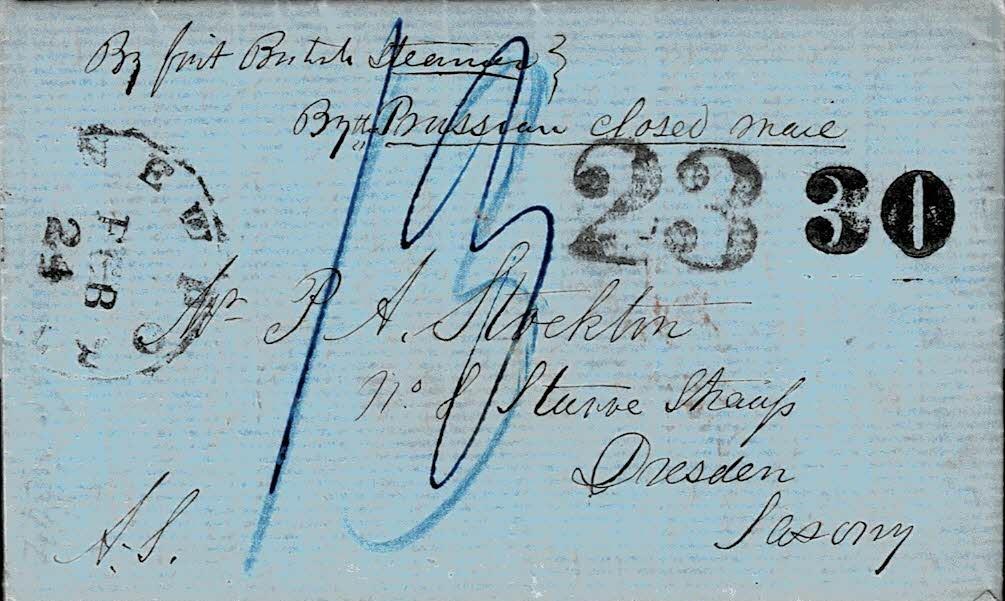 By first British Steamer
By the Prussian closed mail
23 30
NEW YORK
FEB
24
Mr P. A. Stockton
No 8 Sturve Strauss
Dresden
Saxony
A. S.
13